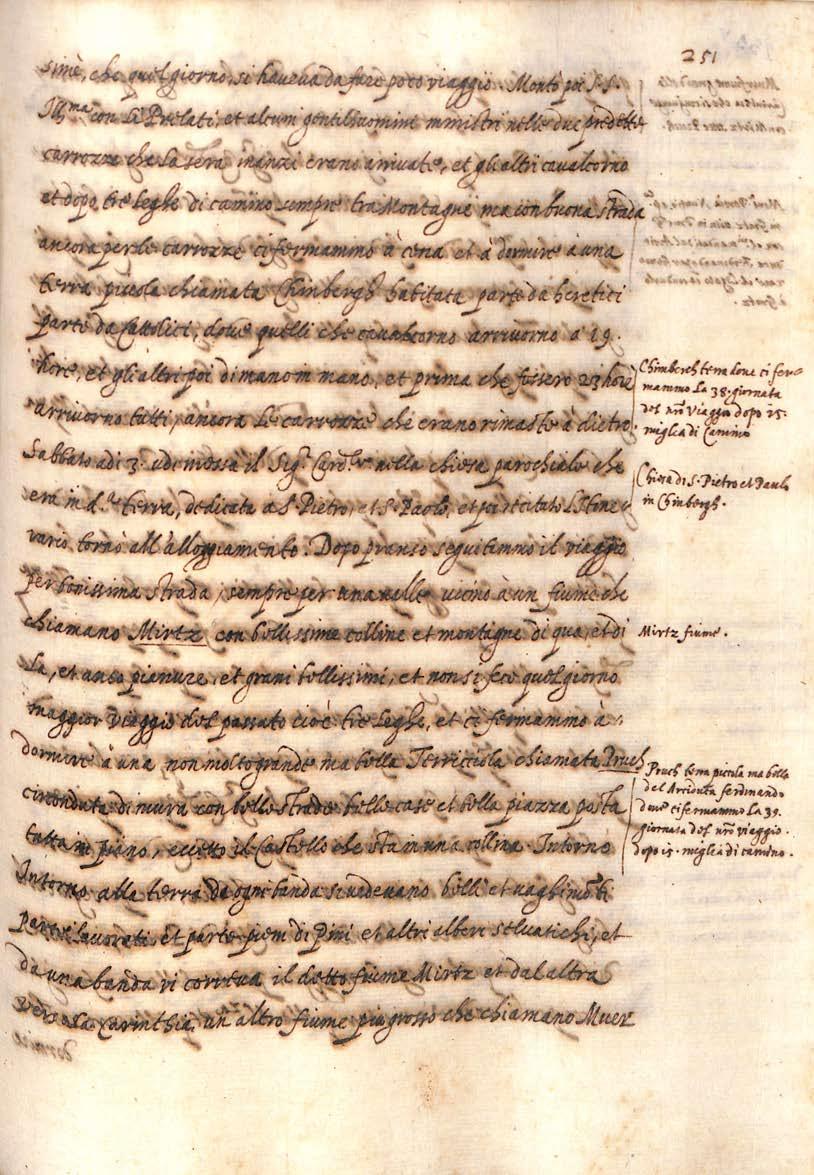 251
sime, che quel giorno si haveva da fare poco viaggio. Montò poi S. S.
Ill.ma con li Prelati, et alcuni gentilhuomini ministri nelle due predette
carrozze che la sera inanzi erano arrivate, et gli altri cavalcorno
et dopo tre leghe di camino sempre tra Montagne ma con buona strada
ancora per le carrozze ci fermammo à cena et à dormire à una
terra piccola chiamata Chimbergh habitata parte da heretici
parte da Cattolici, dove quelli che cavalcorno arrivorno à 19.
hore, et gli altri poi di mano in mano, et prima che fussero 23 hore
arrivorno tutti, ancora le carrozze che erano rimaste à dietro.
Chimberch terra dove ci fer=
mammo la 38. giornata
del nro viaggio dopo 15.
miglia di Camino
Sabbato adi 3. udì messa il Sig.r Card.le nella chiesa parochiale che
era in d.a terra, dedicata à S. Pietro, et S. Paolo, et poi recitato
vario tornò all'alloggiamento. Dopo pranso seguitammo il viaggio
Chiesa di S. Pietro et Paulo
in Chimbergh.
per bonissima strada, sempre per una valle vicino à un fiume che
chiamano Mirtz con bellissime colline et montagne di qua, et di
Mirtz fiume.
la, et anco pianure, et grani bellissimi, et non si fece quel giorno
maggior viaggio del passato cioè tre leghe, et ci fermammo à
dormire à una non molto grande ma bella Terricciola chiamata Pruch
circondata di mura con belle strade belle case et bella piazza posta
tutta in piano, eccetto il Castello che sta in una collina. Intorno
Pruch terra piccola ma bella
del Arciduca ferdinando
dove ci fermammo la 39.
giornata del nro viaggio.
dopo 15. miglia di camino.
Intorno alla terra da ogni banda si vedevano belli et vaghi monti
parte lavorati, et parte pieni di Pini et altri alberi selvatichi, et
da una banda vi correva il detto fiume Mirtz et dal altra
verso la Carinthia un altro fiume piu grosso che chiamano Muer